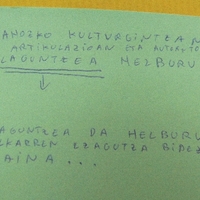 ANOZKO KULTURGINTZAN
ARTIKULAZIOAN ETA AUTOAFTO
LAGUNTZEA HELBURU
AGUNTZEA DA HELBURU
EKARREN EZAGUTZA BIDEZ
AINA ...